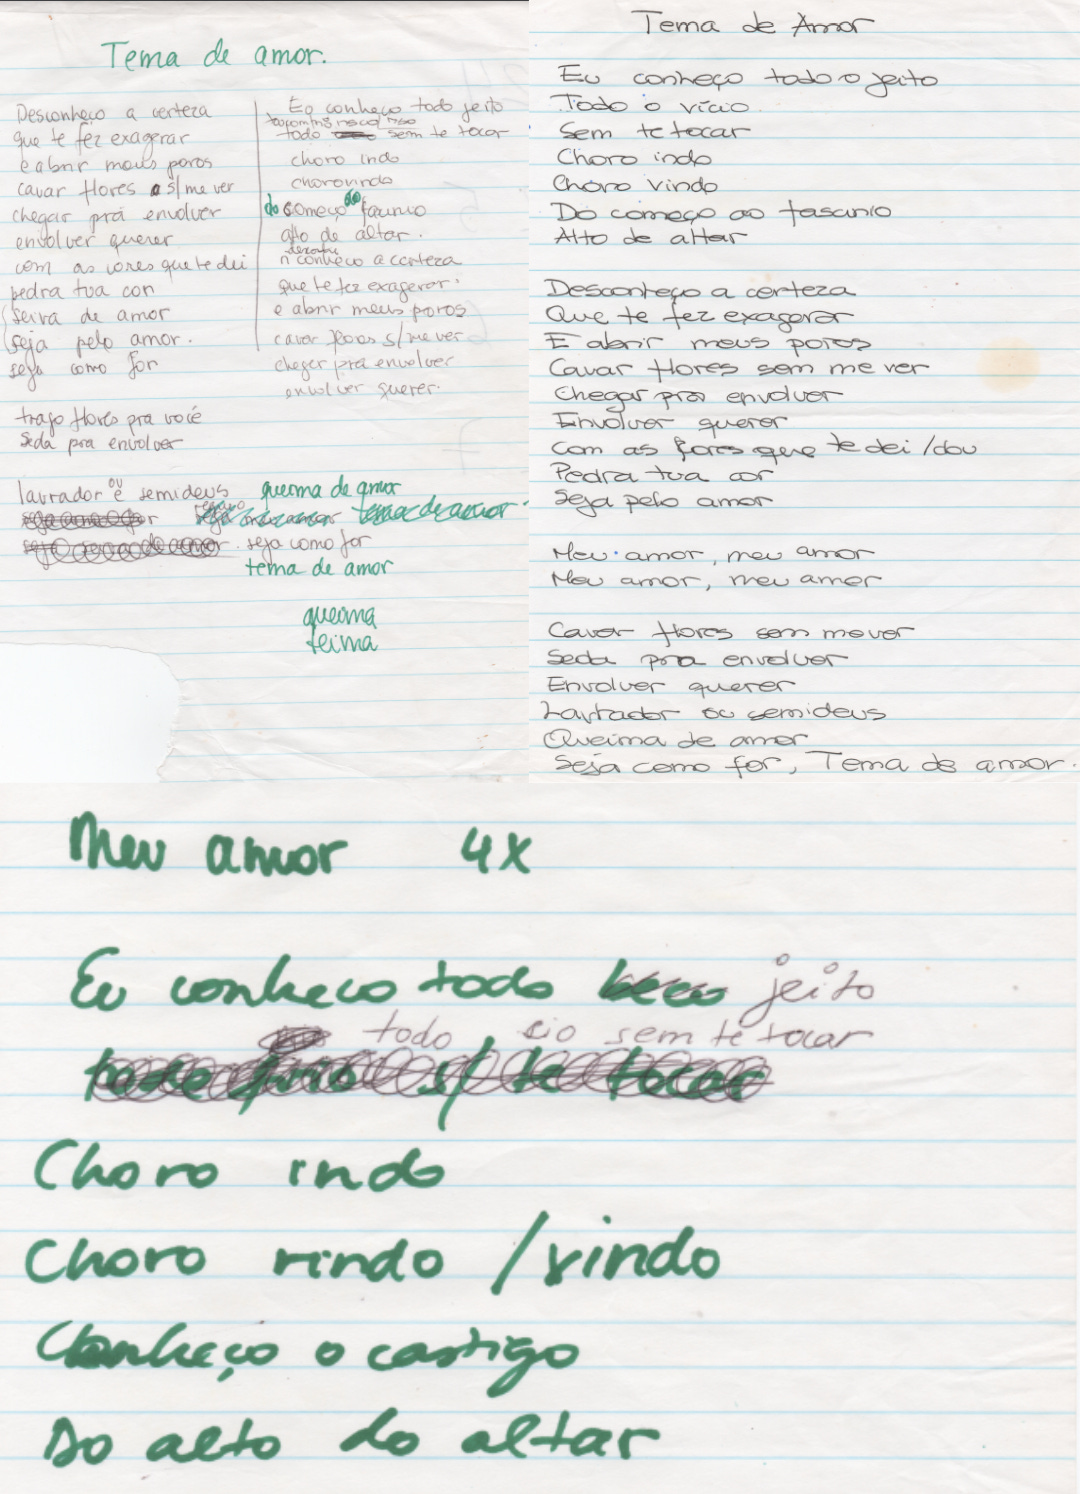 Tema de amor.
Desconheço a certeza
que te fez exagerar
e abrir meus poros
cavar flores s/ me ver
chegar pra envolver
envolver querer
com as cores que te dei
pedra tua cor
seiva de amor
seja pelo amor.
seja como for
trago flores pra você
seda pra envolver
lavrador ou é semideus
Eo conheço todo jeito
todo sem te tocar
choro indo
choro vindo
do começo ao
alto de altar.
ñ conheço a certeza
que te fez exagerar.
e abrir meus poros
cavar flores s/ me ver
chegar pra envolver
envolver querer.
queima de amor
tema de amor
seja como for
tema de amor
queima
teima
Tema de Amor
Eu conheço todo o jeito
Todo o vício
Sem te tocar
Choro indo
Choro vindo
Do começo ao fascínio
Alto de altar
Desconheço a certeza
Que te fez exagerar
E abrir meus poros
Cavar flores sem me ver
Chegar pra envolver
Envolver querer
Com as cores que te dei / dou
Pedra tua cor
Seja pelo amor
Meu amor, meu amor
Meu amor, meu amor
Cavar flores sem me ver
Seda pra envolver
Envolver querer
Lavrador ou semideus
Queima de amor
Seja como for, Tema de amor.
Meu amor 4X
Eu conheco todo beco jeito
todo cio sem te tocar
todo s/ te tocar
Choro indo
Choro rindo / vindo
Conheço o castigo
Do alto do altar